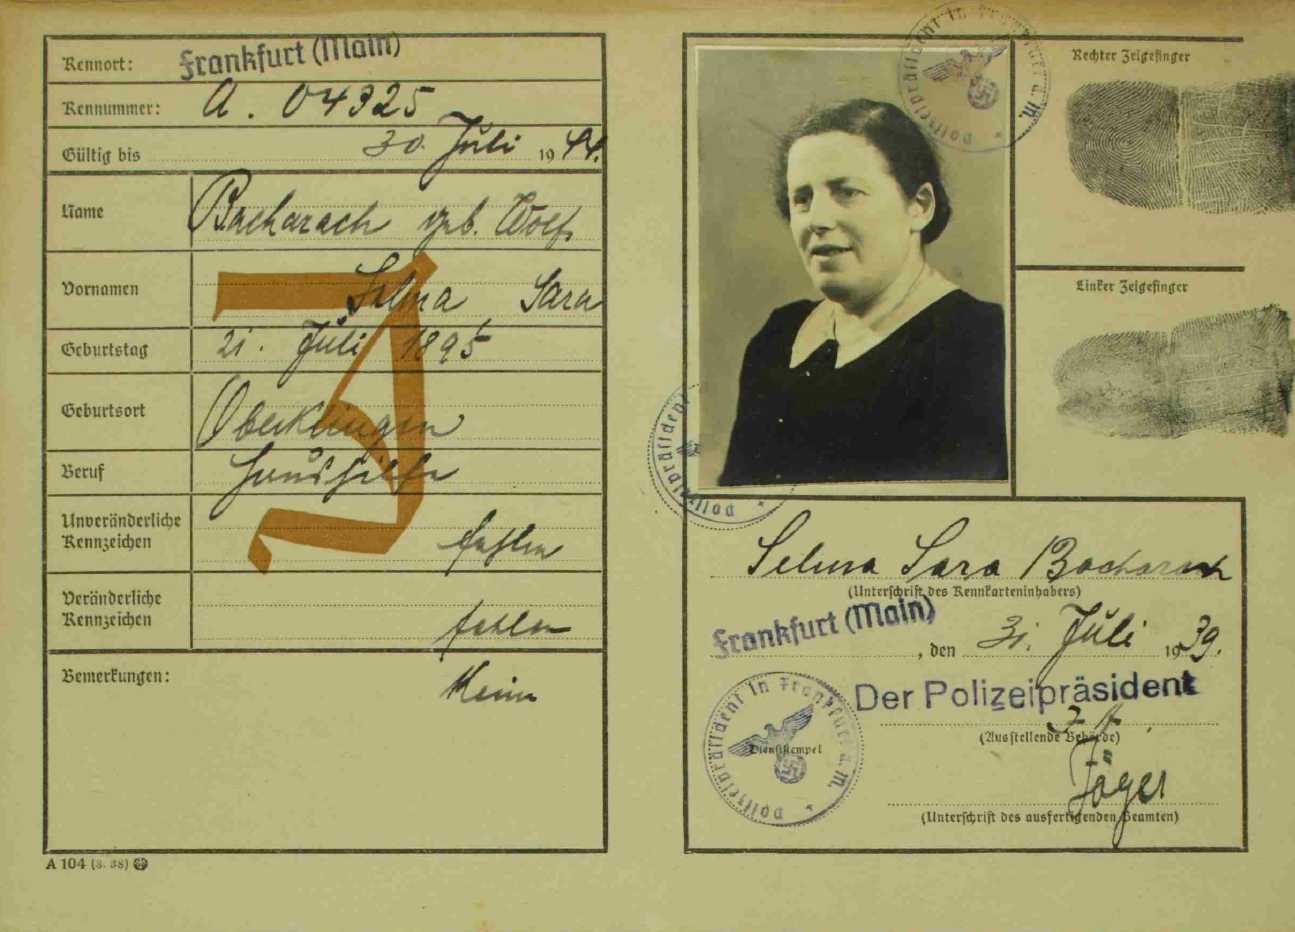 Kennort: Frankfurt (Main)
Kennummer: A. 04325
Gültig bis 30. Juli 1944.
Name Bacharach geb. Wolf
Vornamen Selma Sara
Geburtstag 21. Juli 1895
Geburtsort Oberklingen
Beruf Haushilfe
Unveränderliche Kennzeichen fehlen
Veränderliche Kennzeichen fehlen
Bemerkungen: Keine
J
A 104 (8. 38)
Rechter Zeigefinger
Linker Zeigefinger
Polizeipräsident in Frankfurt a. M.
Polizeipräsident
Selma Sara Bacharach
(Unterschrift des Kennkarteninhabers)
Frankfurt (Main), den 31. Juli 1939.
Der Polizeipräsident
(Ausstellende Behörde)
Polizeipräsident in Frankfurt a. M.
Dienststempel
Jäger
(Unterschrift des ausfertigenden Beamten)